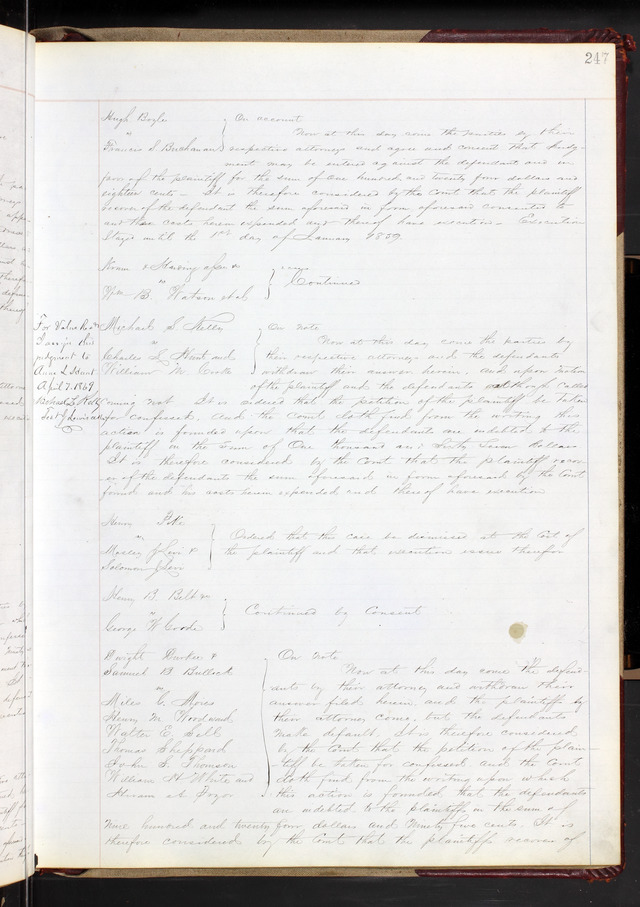 247
Hugh Boyle
vs
Francis S Buchanan
On account
Now at this day come the parties by their
respective attorneys and agree and consent that Judg-
ment may be entered against the defendant and in
favor of the plaintiff for the sum of One hundred and twenty four dollars and
eighteen cents - It is therefore considered by the Court that the plaintiff
recover of the defendant the sum aforesaid in form aforesaid consented to
and their costs herein expended and thereof have execution - Execution
Stayed until the 1st day of January 1859
vs
Wm B. Watson et al
Continued
For Value Recd
I assign this
judgment to
Anna L Hunt
April 7. 1869
Michael S. Kelly
vs
Charles L Hunt and
William M.
On Note
Now at this day come the parties by
their respective attorneys and the defendants
withdraw their answer herein, and upon motion
of the plaintiff and the defendants although called
coming not It is ordered that the petition of the plaintiff be taken
for confessed, and the Court doth find from the writing this
action is founded upon that the defendants are indebted to the
plaintiff in the Sum of One thousand and Sixty Seven dollars
It is therefore considered by the Court that the plaintiff recov-
er of the defendants the sum aforesaid in form aforesaid by the Court
found and his costs herein expended and thereof have execution
Henry
vs
Mosley J Levi &
Solomon J Levi
Ordered that this case be dismissed at the Cost of
the plaintiff and that execution issue therefor
Henry B. Belt
vs
George W. Coode
Continued by Consent
Dwight Durkee &
Samuel B Bullock
vs
Miles C. Moses
Henry M. Woodward
Walter E. Sell
Thomas Sheppard
John S. Thomson
William H White and
Hiram
On Note
Now at this day come the defend-
ants by their attorney and withdraw their
answer filed herein, and the plaintiffs by
their attorney come, but the defendants
make default. It is therefore considered
by the Court that the petition of the plain-
tiff be taken for confessed and the Court
doth find from the writing upon which
this action is founded that the defendants
are indebted to the plaintiff in the sum of
Nine hundred and twenty four dollars and Ninety five cents. It is
therefore considered by the Court that the plaintiffs recover of